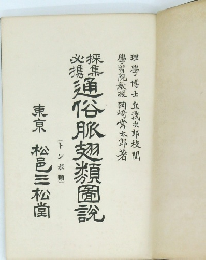 理學博士丘淺次郎校閲
學習院教授岡崎常太郎著
採集必携
通俗脈翅類圖說
(トンボ類)
東京 松邑三松堂